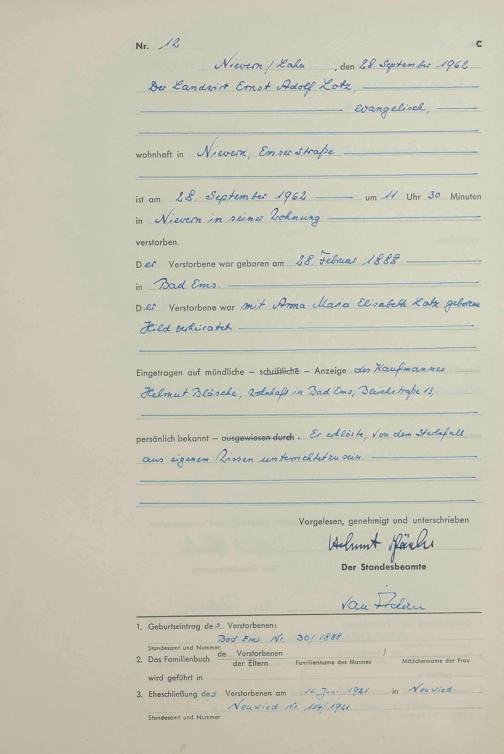 Nr. 12 C
Nievern/Lahn, den 28. September 1962
Der Landwirt Ernst Adolf Lotz,
evangelisch,
wohnhaft in Nievern, Emser Straße
ist am 28. September 1962 um 11 Uhr 30 Minuten
in Nievern in seiner Wohnung
verstorben.
Der Verstorbene war geboren am 28. Februar 1888
in Bad Ems.
Der Verstorbene war mit Anna Maria Elisabeth Lotz geborene
Hild verheiratet
Eingetragen auf mündliche – schriftliche – Anzeige des Kaufmannes
Helmut Bläsche, wohnhaft in Bad Ems, Bleichstraße 13.
persönlich bekannt – ausgewiesen durch. Er erklärte, von dem Sterbefall
aus eigenem Wissen unterrichtet zu sein.
Vorgelesen, genehmigt und unterschrieben
Helmut
Der Standesbeamte
1. Geburtseintrag des Verstorbenen:
Bad Ems Nr. 30/1888
Standesamt und Nummer
2. Das Familienbuch de Verstorbenen /
der Eltern Familienname des Mannes Mädchenname der Frau
wird geführt in
3. Eheschließung des Verstorbenen am Juni 1921 in Neuwied
Neuwied Nr. 114/1921
Standesamt und Nummer